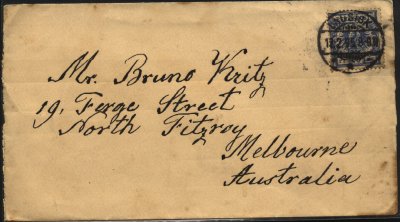 Mr. Bruno Kritz
19, Ferge Street
North Fitzroy
Melbourne
Australia